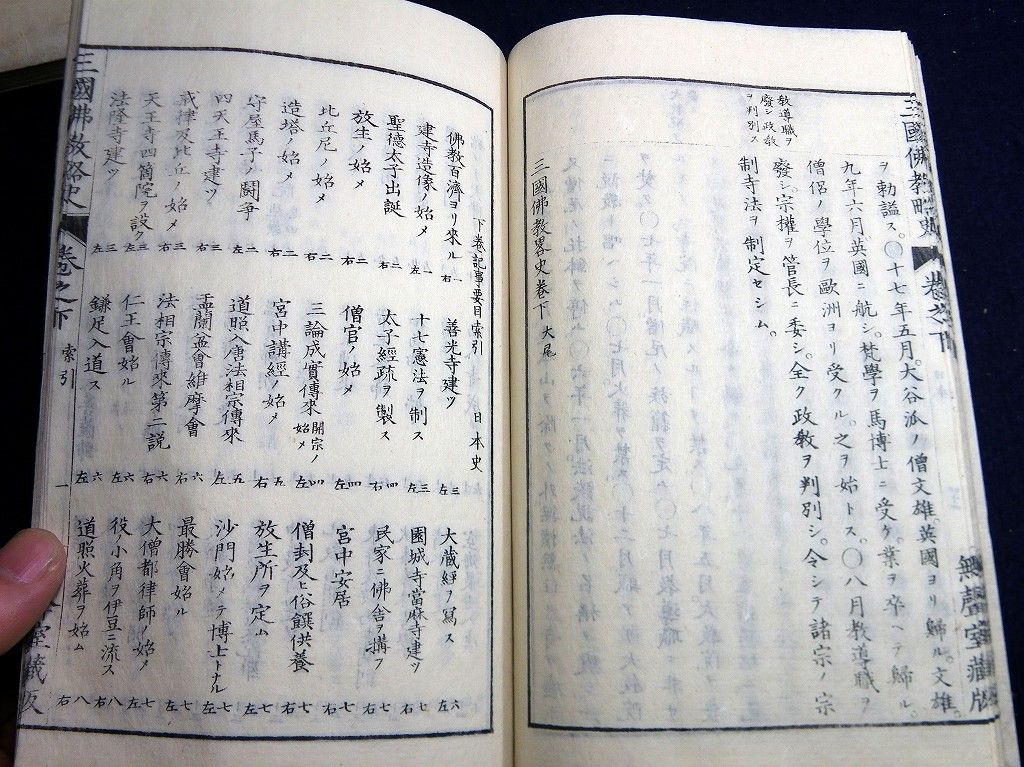 三國佛教略史 卷之下
無聲室藏版
ヲ勅謚ス。〇十七年五月。大谷泒ノ僧文雄。英國ヨリ歸ル。文雄。
九年六月。英國ニ航シ。梵學ヲ馬博士ニ受ク。業ヲ卒ヘテ歸ル。
僧侶ノ學位ヲ歐洲ヨリ受クル。之ヲ始トス。〇八月教導職ヲ
廢シ。宗權ヲ管長ニ委シ。全ク政教ヲ判別シ。令シテ諸宗ノ宗
制寺法ヲ制定セシム。
教導職ヲ
廢シ政教
ヲ判別ス
三國佛教畧史卷下大尾
下卷記事要目索引 日本史
佛教百濟ヨリ來ル 一右 善光寺建ツ 三左 大藏經ヲ寫ス 六左
建寺造像ノ始メ 一左 十七憲法ヲ制ス 三左 園城寺當麻寺建ツ 七右
聖德太子出誕 二右 太子經疏ヲ製ス 四右 民家ニ佛舍ヲ搆フ 七右
放生ノ始メ 二右 僧官ノ始メ 四左 宮中安居 七右
比丘尼ノ始メ 二右 三論成實傳來開宗ノ始メ 四左 僧封及ヒ俗饌供養 七右
造塔ノ始メ 二右 宮中講經ノ始メ 五右 放生所ヲ定ム 七左
守屋馬子ノ鬪爭 二左 道照入唐法相宗傳來 五左 沙門始メテ博士トナル 七左
四天王寺建ツ 三右 盂蘭盆會維摩會 六右 最勝會始ル 七左
戒律及比丘ノ始メ 三右 法相宗傳來第二説 六右 大僧都律師ノ始メ 七左
天王寺四箇院ヲ設ク 三左 仁王會始ル 六左 役小角ヲ伊豆ニ流ス 八右
法隆寺建ツ 三左 鎌足入道ス 六左 道照火葬ヲ始ム 八右
三國佛教略史 卷之下 索引 一
室藏版